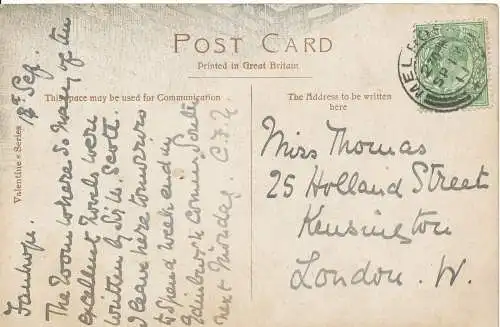 POST CARD
Printed in Great Britain
This space may be used for Communication
The Address to be written
here
Valentine's Series
Fairhope. 18 Sep.
The Room where so many of the
excellent Novels were
written by Sir W. Scott.
I leave here tomorrow
to spend week end in
Edinburgh coming South
next Monday. C.F.
Miss Thomas
25 Holland Street
Kensington
London. W.
MELROSE
SP
11